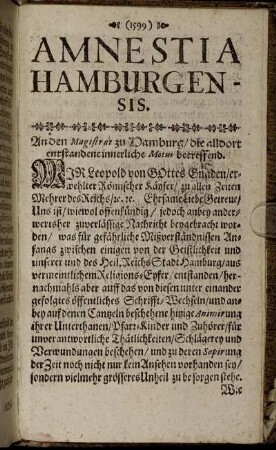 (1599)
AMNESTIA
HAMBURGEN-
SIS.
An den Magistrat zu Hamburg/ die alldort
entstandene innerliche Motus betreffend.
WIR Leopold von GOttes Gnaden/ er-
wehlter Römischer Käyser/ zu allen Zeiten
Mehrer des Reichs/ ꝛc. ꝛc. Ehrsame Liebe Getreue/
Uns ist/ wiewol offenkündig/ jedoch anbey ander-
wertsher zuverlässige Nachricht beygebracht wor-
den/ was für gefährliche Mißverständnissen An-
fangs zwischen einigen von der Geistlichkeit und
unserer und des Heil. Reichs Stadt Hamburg/ aus
vermeintlichem Religions-Eyfer/ entstanden/ her-
nachmahls aber auff das von diesen unter einander
gefolgtes öffentliches Schrifft-Wechseln/ und an-
bey auf denen Cantzeln beschehene hitzige Animirung
ihrer Unterthanen/ Pfarr-Kinder und Zuhörer/ für
unverantwortliche Thätlichkeiten/ Schlägerey und
Verwundungen beschehen/ und zu deren Sopirung
der Zeit noch nicht nur kein Ansehen vorhanden sey/
sondern vielmehr grösseres Unheil zu besorgen stehe.